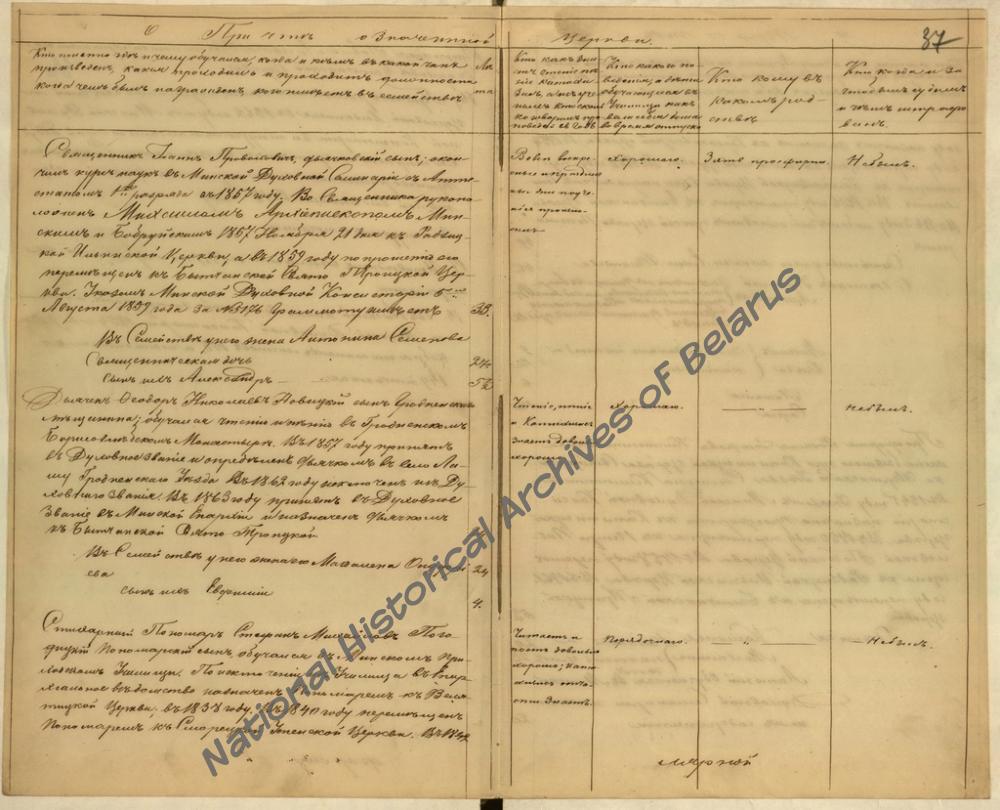 О Причтѣ означенной Церкви.
87
Кто именно гдѣ и чему обучался, когда и кѣмъ въ какой чинъ
произведенъ, какія проходилъ и проходитъ должности
когда чемъ былъ награжденъ, кого имѣетъ въ семействѣ
Лѣта
Кто какъ
чтеніе
Кто какого по-
веденія, а дѣти
обучающіяся въ
Училищѣ какъ
вели себя дома
во время отпуска
Кто кому въ
какомъ род-
ствѣ
Кто когда и за
что былъ судимъ
и чемъ штрафо-
ванъ.
Священникъ Іоаннъ дьячковскій сынъ; окон-
чилъ курсъ наукъ въ Минской Духовной Семинаріи съ Атте-
статомъ 1го разряда въ 1857 году. Во Священника рукопо-
ложенъ Михаиломъ Архіепископомъ Мин-
скимъ и Бобруйскимъ 1857 Ноября 21 дня къ
кой Ильинской Церкви, а въ 1859 году по прошенію его
перемѣщенъ къ Бытчанской Свято Троицкой Цер-
кви. Указомъ Минской Духовной Консисторіи 5го
Августа 1859 года за №3176 Грамоту имѣетъ
33.
Во всѣ воскре-
сные и праздни-
чные дни
Хорошаго.
Зять просфирни.
Небылъ.
Въ Семействѣ у него жена Антонина Семенова
Священническая дочь
24
сынъ ихъ Александръ
5½
Дьячекъ Ѳеодоръ Николаевъ Новицкій сынъ Гродненскаго
мѣщанина; обучался чтенію и пѣнію въ Гродненскомъ
Борисоглѣбскомъ Монастырѣ. Въ 1857 году принятъ
въ Духовное званіе и опредѣленъ дьячкомъ въ село Ла-
шу Гродненскаго Уѣзда Въ 1862 году исключенъ изъ Ду-
ховнаго званія. Въ 1863 году принятъ въ Духовное
Званіе въ Минской Епархіи и назначенъ дьячкомъ
къ Бытчанской Свято Троицкой
Чтеніе, пѣніе
и Катихизисъ
знаетъ довольно
хорошо
Хорошаго.
— „ —
небылъ.
Въ Семействѣ у него жена Магдалена
ева
24
сынъ ихъ Евфимій
4.
Стихарный Пономарь Стефанъ Михайловъ
Пономарскій сынъ, обучался въ Минскомъ При-
ходскомъ Училищѣ. По исключеніи изъ Училища въ Епар-
хіальное вѣдомство назначенъ Пономаремъ къ Веля-
тицкой Церкви, въ 1838 году. Въ 1840 году перемѣщенъ
Пономаремъ къ Успенской Церкви. Въ
Читаетъ и
поетъ довольно
хорошо; Кати-
хизисъ отча-
сти знаетъ.
Порядочнаго.
— „ —
Небылъ.
National Historical Archives of Belarus